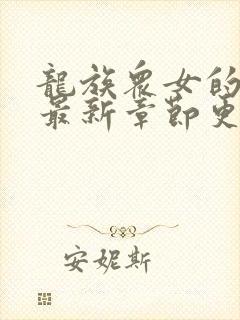 龍族眾女的
最新章節更
安妮斯